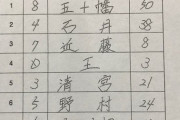 8 五十幡 30
2 4 石井 38
3 7 近藤 8
4 D 王 3
5 3 清宮 21
6 5 野村 24